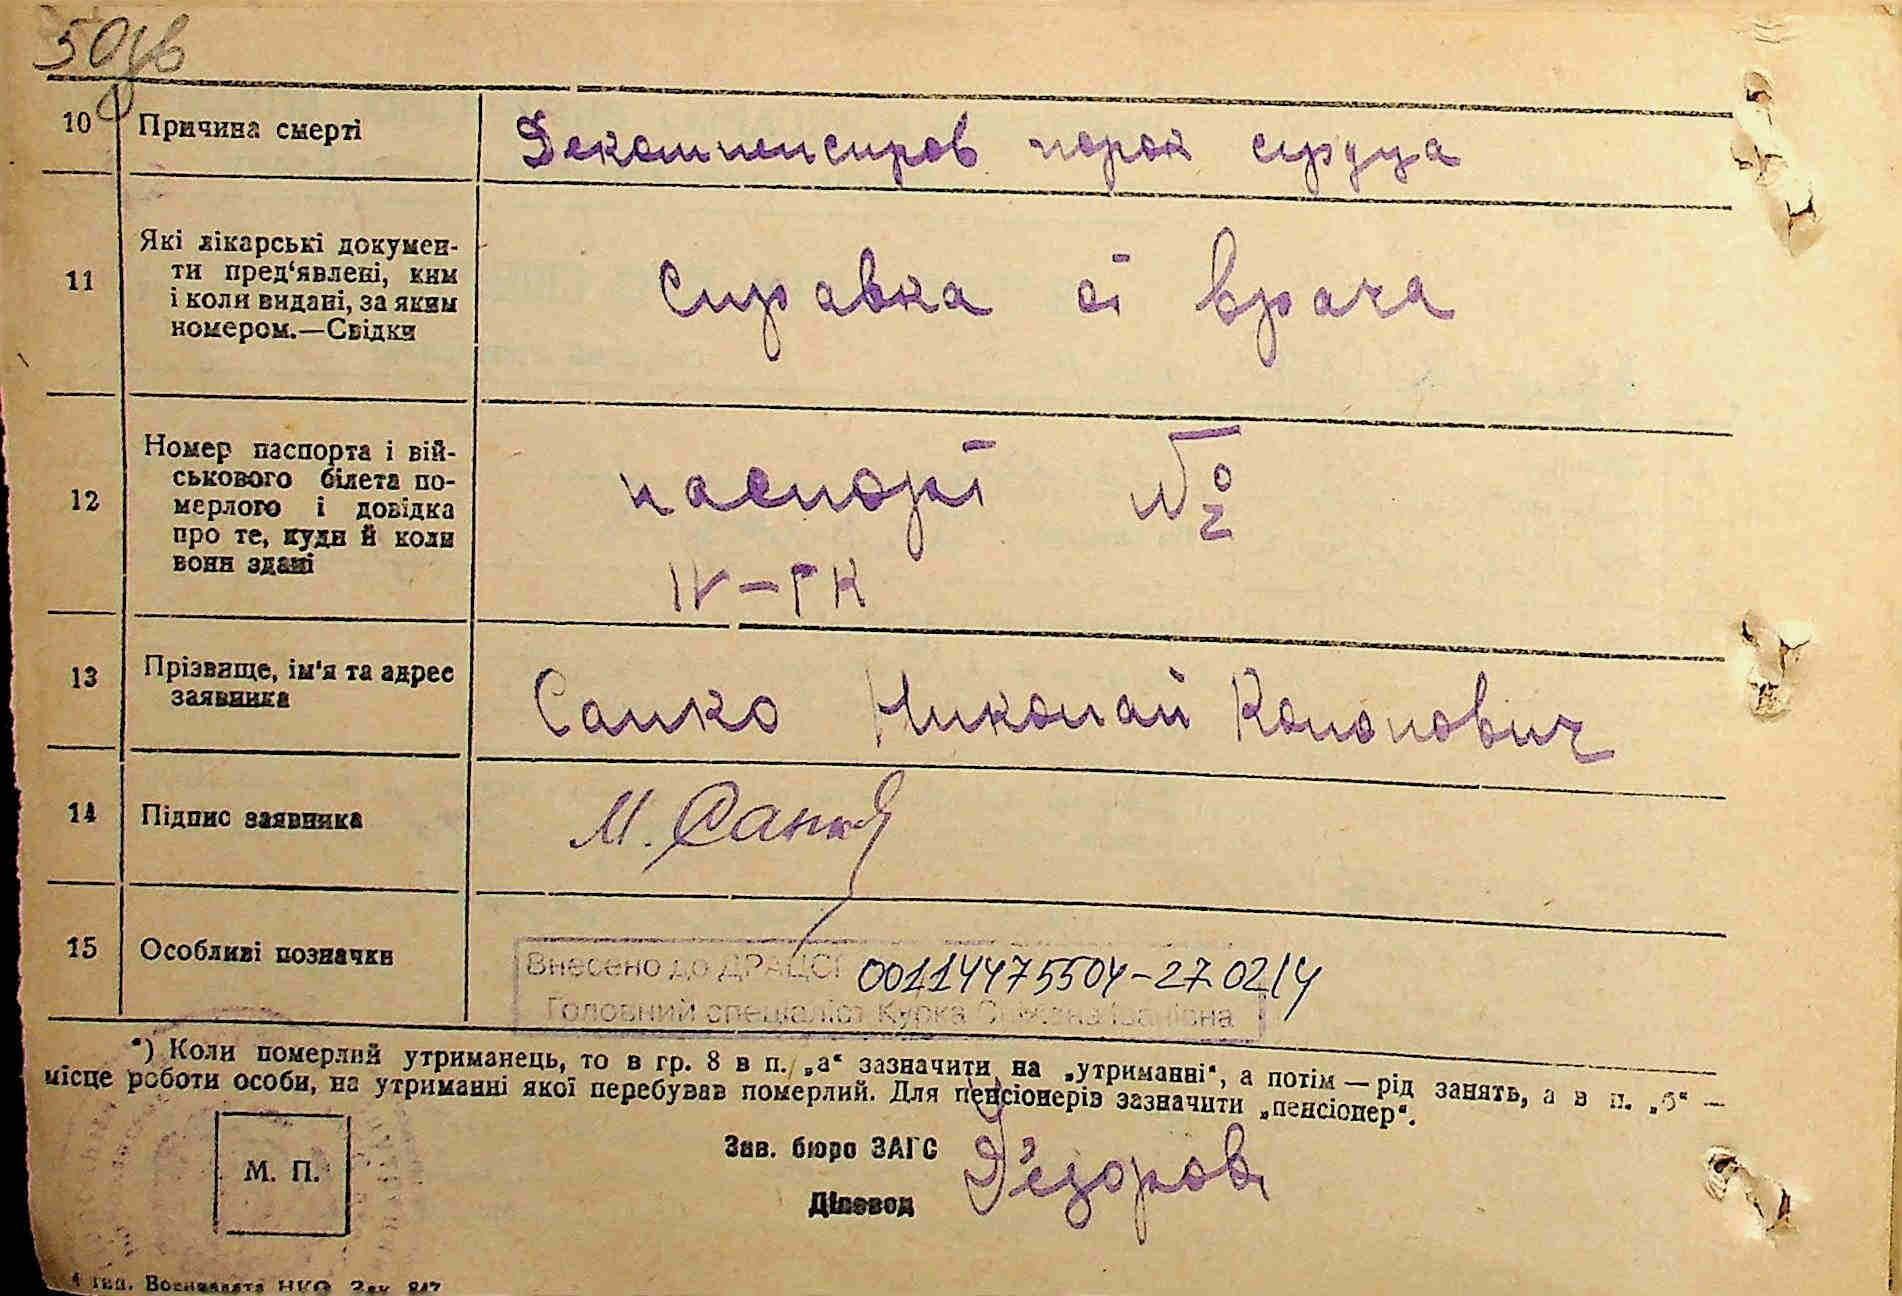 50зв
10 Причина смерті Декомпенсиров порок сердца
11 Які лікарські докумен-
ти пред‘явлені, ким
і коли видані, за яким
номером.—Свідки
Справка от врача
12 Номер паспорта і вій-
ськового білета по-
мерлого і довідка
про те, куди й коли
вони здані
паспорт №
IV-РК
13 Прізвище, ім‘я та адрес
заявника
Санко Николай Кононович
14 Підпис заявника М. Санко
15 Особливі позначки
Внесено до ДРАЦСГ 00114475504-27.02.14
Головний спеціаліст Курка Іванівна
*) Коли померлий утриманець, то в гр. 8 в п. „а“ зазначити на „утриманні“, а потім — рід занять, а в п. „б“ —
місце роботи особи, на утриманні якої перебував померлий. Для пенсіонерів зазначити „пенсіонер“.
М. П.
Зав. бюро ЗАГС
Діловод
тип. Воениздата НКО Зак. 847